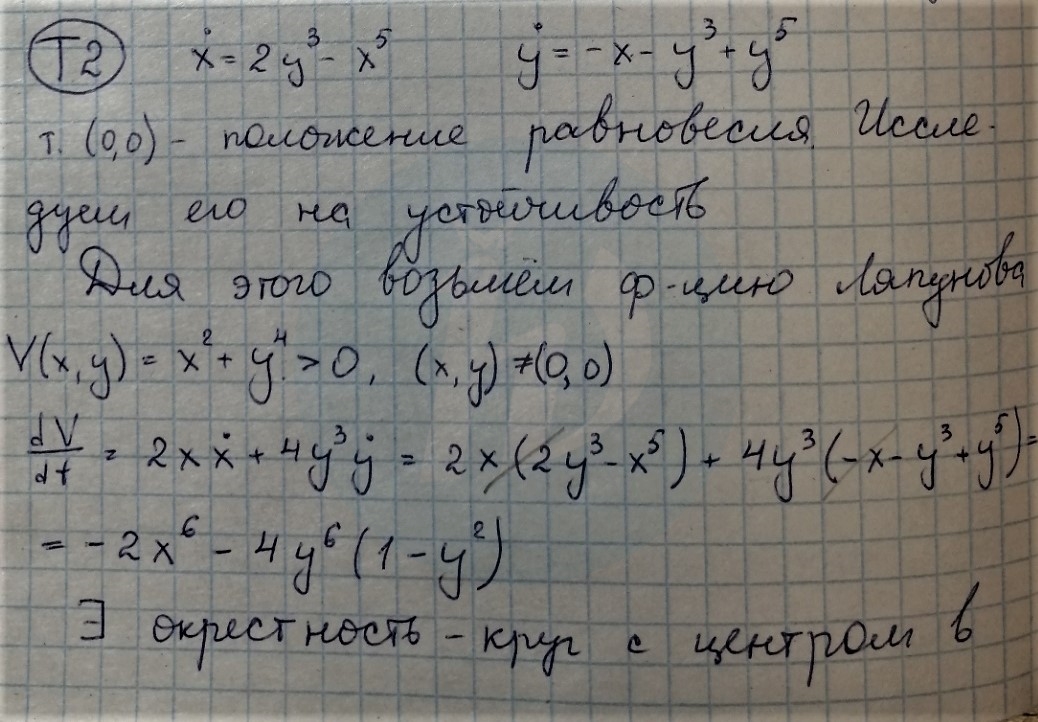 Т2 ẋ = 2y³ - x⁵ ẏ = -x - y³ + y⁵
т. (0,0) - положение равновесия. Иссле-
дуем его на устойчивость
Для этого возьмём ф-цию Ляпунова
V(x, y) = x² + y⁴ > 0, (x, y) ≠ (0, 0)
dV/dt = 2xẋ + 4y³ẏ = 2x(2y³ - x⁵) + 4y³(-x - y³ + y⁵) =
= -2x⁶ - 4y⁶(1 - y²)
∃ окрестность - круг с центром в